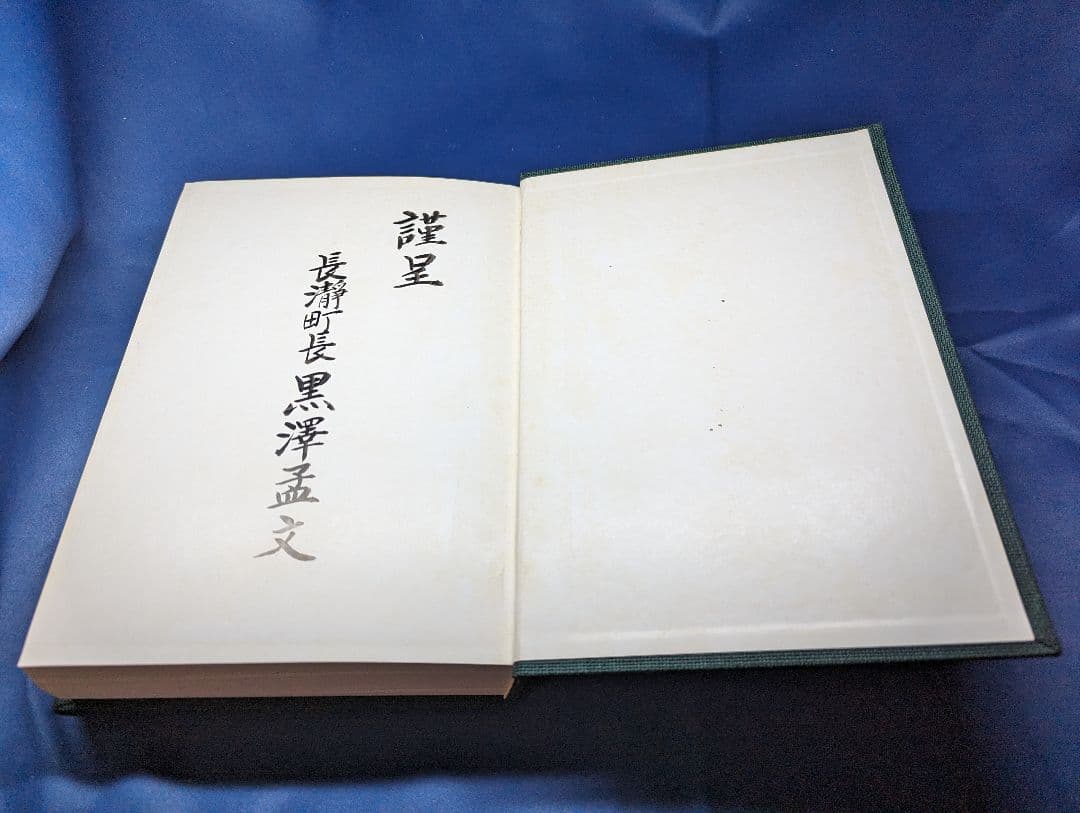 謹呈
長瀞町長 黒澤孟文